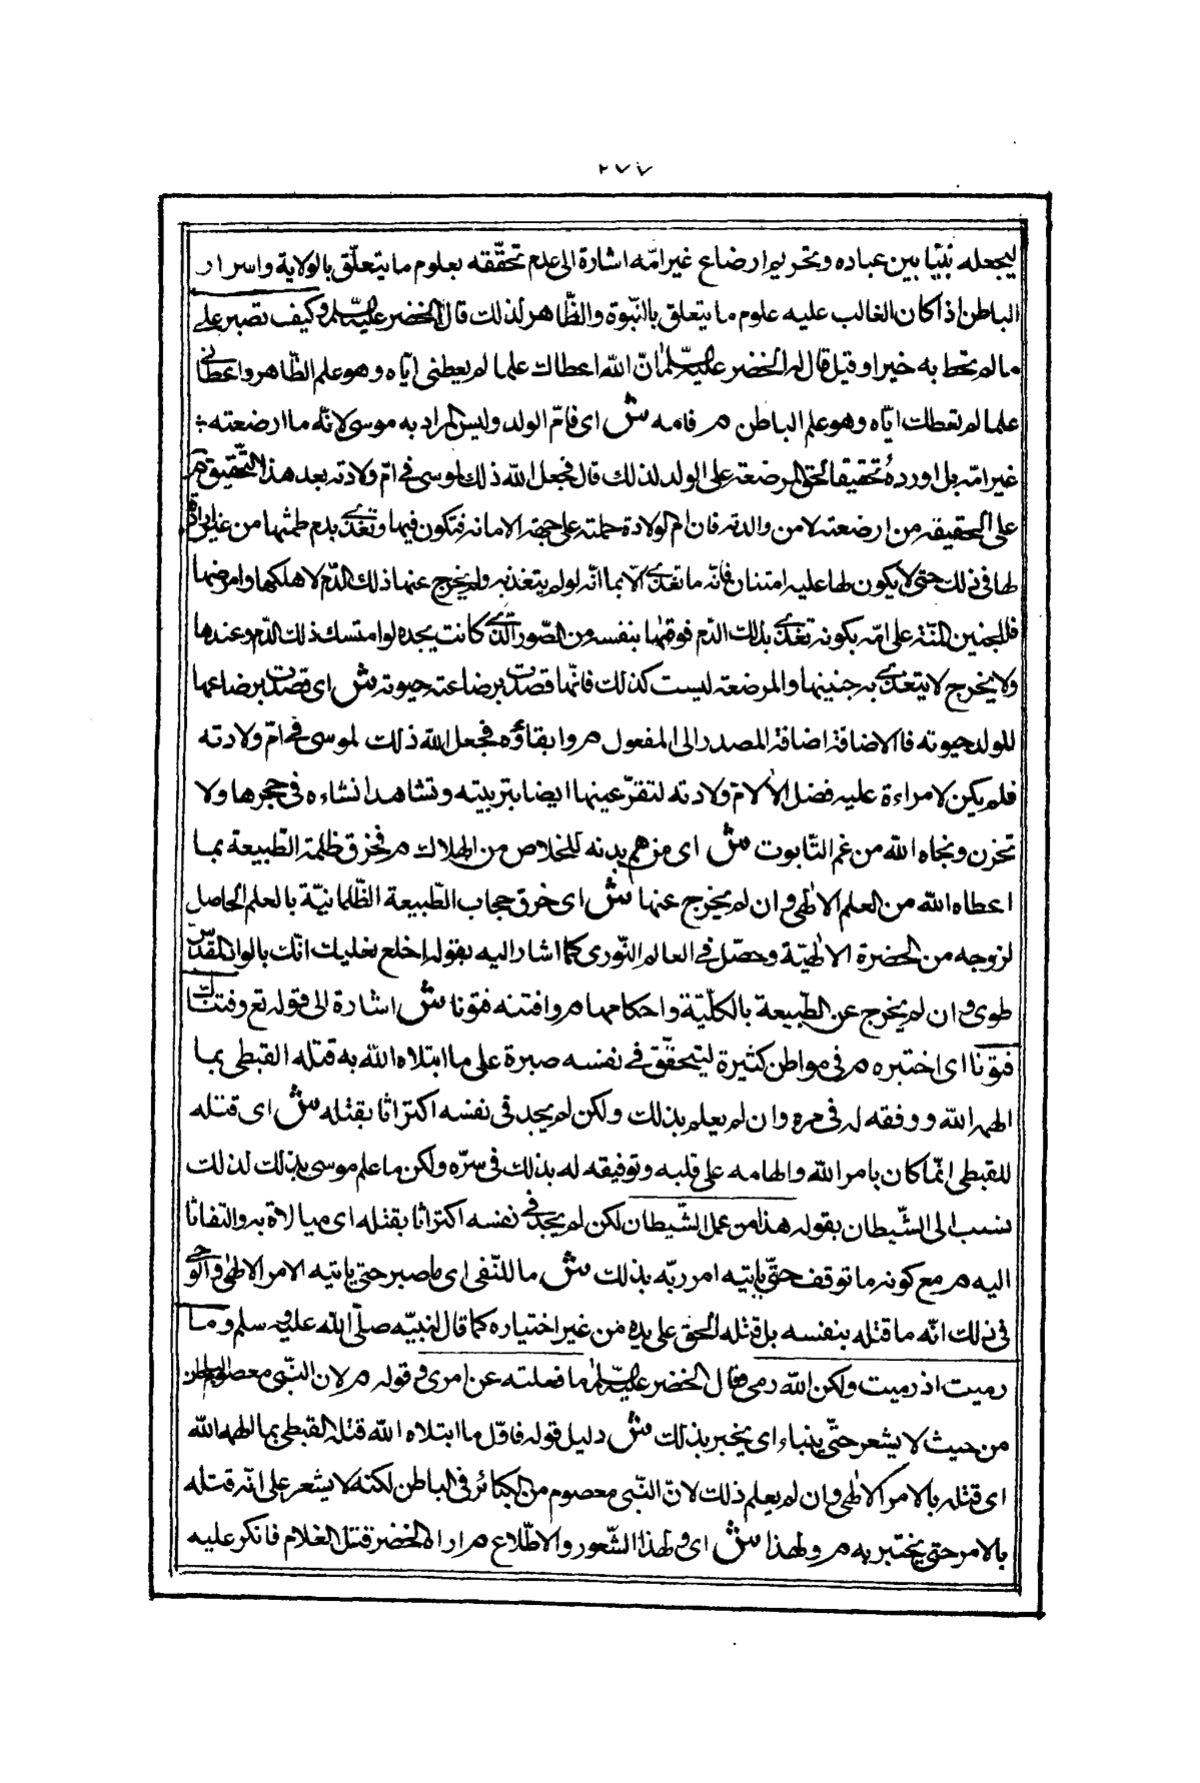 ٢٧٧
ليجعله نبيّا بين عباده وتحريم ارضاع غير امّه اشارة الى عدم تحقّقه بعلوم ما يتعلّق بالولاية واسرار
الباطن اذ كان الغالب عليه علوم ما يتعلق بالنّبوة والظّاهر لذلك قال الخضر عليه السّلم وكيف تصبر على
ما لم تحط به خبرا وقيل قال له الخضر عليه السّلم انّ الله اعطاك علما لم يعطنى ايّاه وهو علم الظّاهر واعطانى
علما لم يعطك ايّاه وهو علم الباطن م فامه ش اى فامّ الولد وليس المراد به موسى لانّه ما ارضعته
غير امّه بل اورده تحقيقا لحق المرضعة على الولد لذلك قال فجعل الله ذلك لموسى فى امّ ولادته بعد هذا التّحقيق م
على الحقيقه من ارضعته لا من ولدته فان ام الولادة حملته على جهة الامانه فتكون فيها وتغذى بدم طمثها من غير ارادة
لها فى ذلك حتى لا يكون لها عليه امتنان فانّه ما تغذى الّا بما انّه لو لم يتغذ به ولم يخرج عنها ذلك الدّم لاهلكها وامرضها
فللجنين المنّة على امّه بكونه تغذى بذلك الدّم فوقها بنفسه من الضّرر الّذى كانت تجده لو امتسك ذلك الدّم عندها
ولا يخرج لا يتغذى به جنينها والمرضعة ليست كذلك فانّها قصدت برضاعته حيوته ش اى قصدت برضاعها
للولد حيوته فالاضافة اضافة المصدر الى المفعول م وابقاؤه فجعل الله ذلك لموسى فى امّ ولادته
فلم يكن لامراءة عليه فضل الّا لامّ ولادته لتقرّ عينها ايضا بتربيته وتشاهد انشاءه فى حجرها ولا
تحزن ونجاه الله من غم التّابوت ش اى من هم بدنه للخلاص من الهلاك م فخرق ظلمة الطّبيعة بما
اعطاه الله من العلم الالهى وان لم يخرج عنها ش اى خرق حجاب الطّبيعة الظّلمانيّة بالعلم الحاصل
لروحه من الحضرة الالهيّة وحصّل فى العالم النّورى كما اشار اليه بقوله اخلع نعليك انّك بالواد المقدّس
طوى وان لم يخرج عن الطّبيعة بالكلّيّة واحكامها م وافتنه فتونا ش اشارة الى قوله تع وفتنّاك
فتونا اى اختبره م فى مواطن كثيرة ليتحقّق فى نفسه صبره على ما ابتلاه الله به قتله القبطى بما
الهمه الله ووفقه له فى سره وان لم يعلم بذلك ولكن لم يجد فى نفسه اكتراثا بقتله ش اى قتله
للقبطى انّما كان بامر الله والهامه على قلبه وتوفيقه له بذلك فى سرّه ولكن ما علم موسى بذلك لذلك
نسب الى الشّيطان بقوله هذا من عمل الشّيطان لكن لم يجد فى نفسه اكتراثا بقتله اى مبالاة به والتفاتا
اليه م مع كونه ما توقف حتّى ياتيه امر ربّه بذلك ش ما للنّفى اى ما صبر حتى ياتيه الامر الالهى والوحى
فى ذلك انّه ما قتله بنفسه بل قتله الحق على يده من غير اختياره كما قال لنبيّه صلّى الله عليه وسلم وما
رميت اذ رميت ولكن الله رمى فقال الخضر عليه السّلم ما فعلته عن امرى وقوله م لان النّبى معصوم الباطن
من حيث لا يشعر حتّى ينباء اى يخبر بذلك ش دليل قوله فاوّل ما ابتلاه الله قتله القبطى بما الهمه الله
اى قتله بالامر الالهى وان لم يعلم ذلك لانّ النّبى معصوم من الكبائر فى الباطن لكنّه لا يشعر على انّه قتله
بالامر حتى يختبر به م ولهذا ش اى ولهذا الشّعور والاطّلاع م اراه الخضر قتل الغلام فانكر عليه